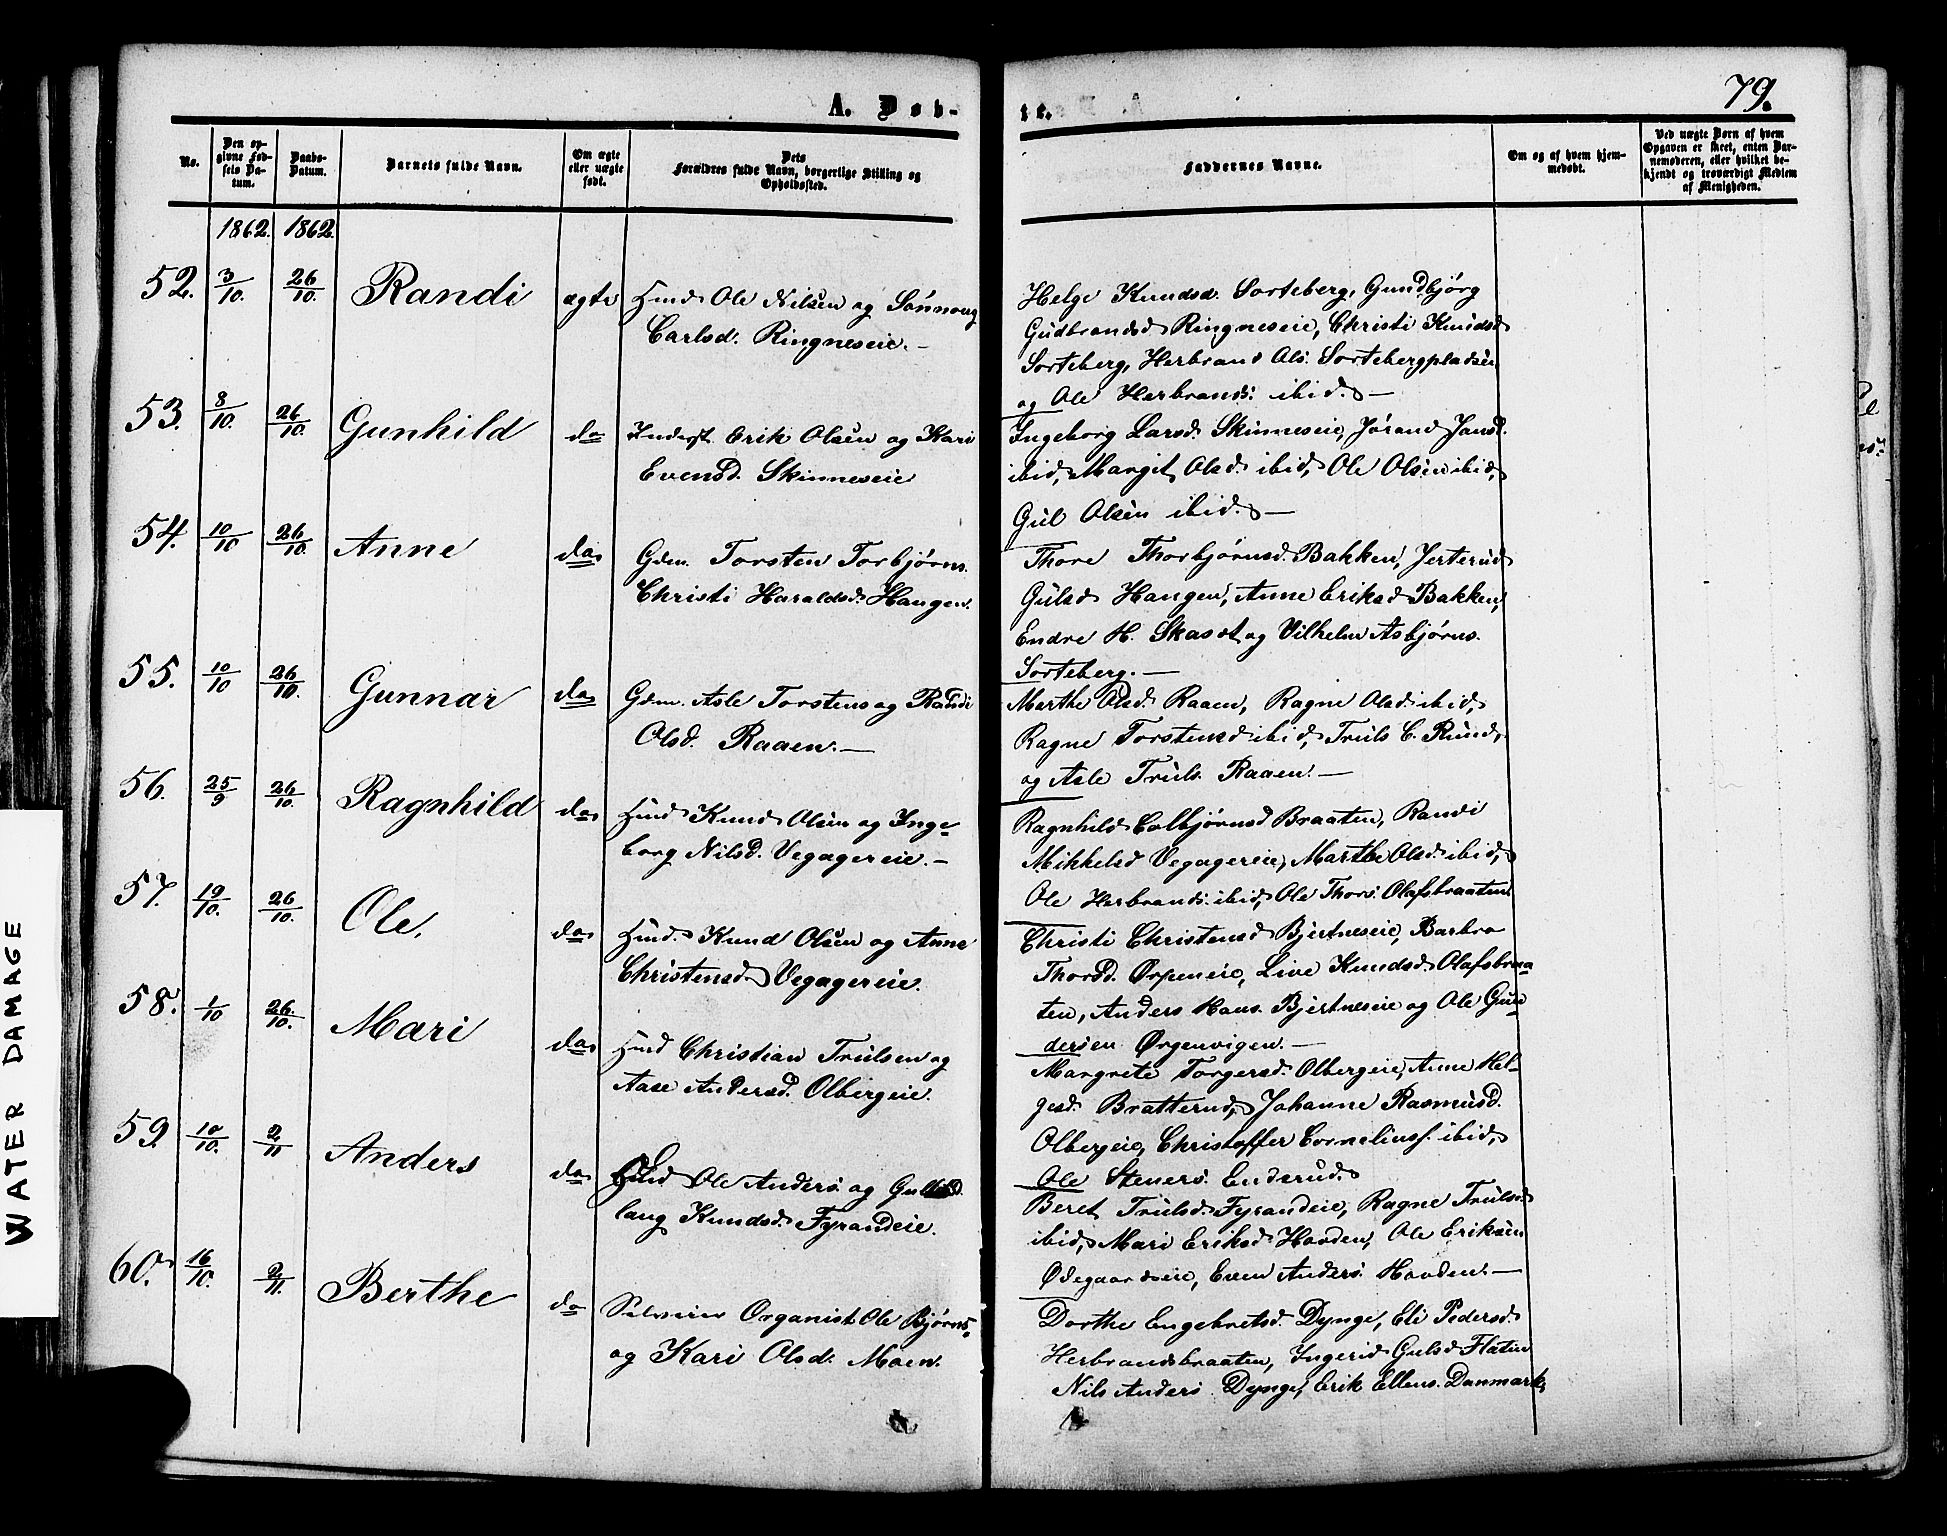 79.
A. Døb-
te.
No.
Den op-
givne Fød-
sels Da-
tum.
Daabs-
Datum.
Barnets fulde Navn.
Om ægte
eller uægte
født.
Dets
Forældres fulde Navn, borgerlige Stilling og
Opholdssted.
Faddernes Navne.
Om og af hvem hjem-
medøbt.
Ved uægte Born af hvem
Opgaven er skeet, enten Bar-
nemoderen, eller hvilket be-
kjendt og troværdigt Medlem
af Menigheden.
1862. 1862.
52. 3/10. 26/10. Randi ægte Huusm. Ole Nilsen og Sønnoug
Carlsd. Ringneseie.—
Helge Knudsd. Sorteberg, Gundbjørg
Gudbrandsd Ringneseie, Christi Knudsd
Sorteberg, Herbrand Ols. Sortebergpladsen
og Ole Herbrands. ibid.—
53. 8/10. 26/10. Gunhild do Inderst. Erik Olsen og Kari
Evensd. Skinneseie
Ingeborg Larsd. Skinneseie, Jørand Jansd.
ibid, Margit Olsd. ibid, Ole Olsen ibid,
Gul Olsen ibid.—
54. 10/10 26/10. Anne do Gdm. Torsten Torbjørns.
Christi Haraldsd. Haugen.
Thore Thorbjørnsd. Bakken, Jerterud
Gulsd Haugen, Anne Eriksd Bakken,
Endre H. Skasет og Vilhelm Asbjørns.
Sorteberg.—
55. 10/10 26/10. Gunnar do Gdm. Asle Torstens og Randi
Olsd. Raaen.—
Marthe Olsd. Raaen, Ragne Olsd ibid,
Ragne Torstensd ibid, Truls C. Rud,
og Asle Truls. Raaen.—
56. 25/9 26/10. Ragnhild do Knud Olsen og Inge-
borg Nilsd. Vegagereie.—
Ragnhild Colbjørnsd Braaten, Randi
Mikkelsd Vegagereie, Marthe Olsd. ibid,
Ole Herbrands. ibid, Ole Thors. Olafsbraaten
57. 19/10. 26/10. Ole. do Knud Olsen og Anne
Christensd. Vegagereie.
Christi Christensd Bjertneseie, Barbro
Thorsd. Ørpeneie, Live Knudsd. Olafsbraa-
ten, Anders Hans. Bjertneseie og Ole Gun-
dersen Ørgenvigen.—
58. 1/10 26/10. Mari do Christian Trulsen og
Aase Andersd. Olbergeie.
Margrete Torgersd. Olbergeie, Anne Hel-
gesd. Bratterud, Johanne Rasmusd.
Olbergeie, Christoffer Corneliusf. ibid,
Ole Steners. Enderud.
59. 10/10. 2/11 Anders do Ole Anders. og Gul-
laug Knudsd. Fyrandeie.
Beret Trulsd. Fyrandeie, Ragne Trulsd.
ibid, Mari Eriksd. Hovden, Ole Eriksen
Ødegaardseie, Even Anders. Hovden.—
60. 16/10. 2/11. Berthe do Selveier Organist Ole Bjørns.
og Kari Olsd. Moen.
Dorthe Engebretsd. Dynge, Eli Pedersd.
Herbrandsbraaten, Ingerid Gulsd Flaten
Nils Anders. Dynge, Erik Ellens. Danmark,
WATER DAMAGE